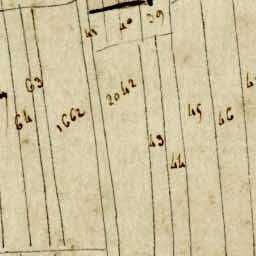 41
40
39
63
64
1662
2042
45
46
43
44